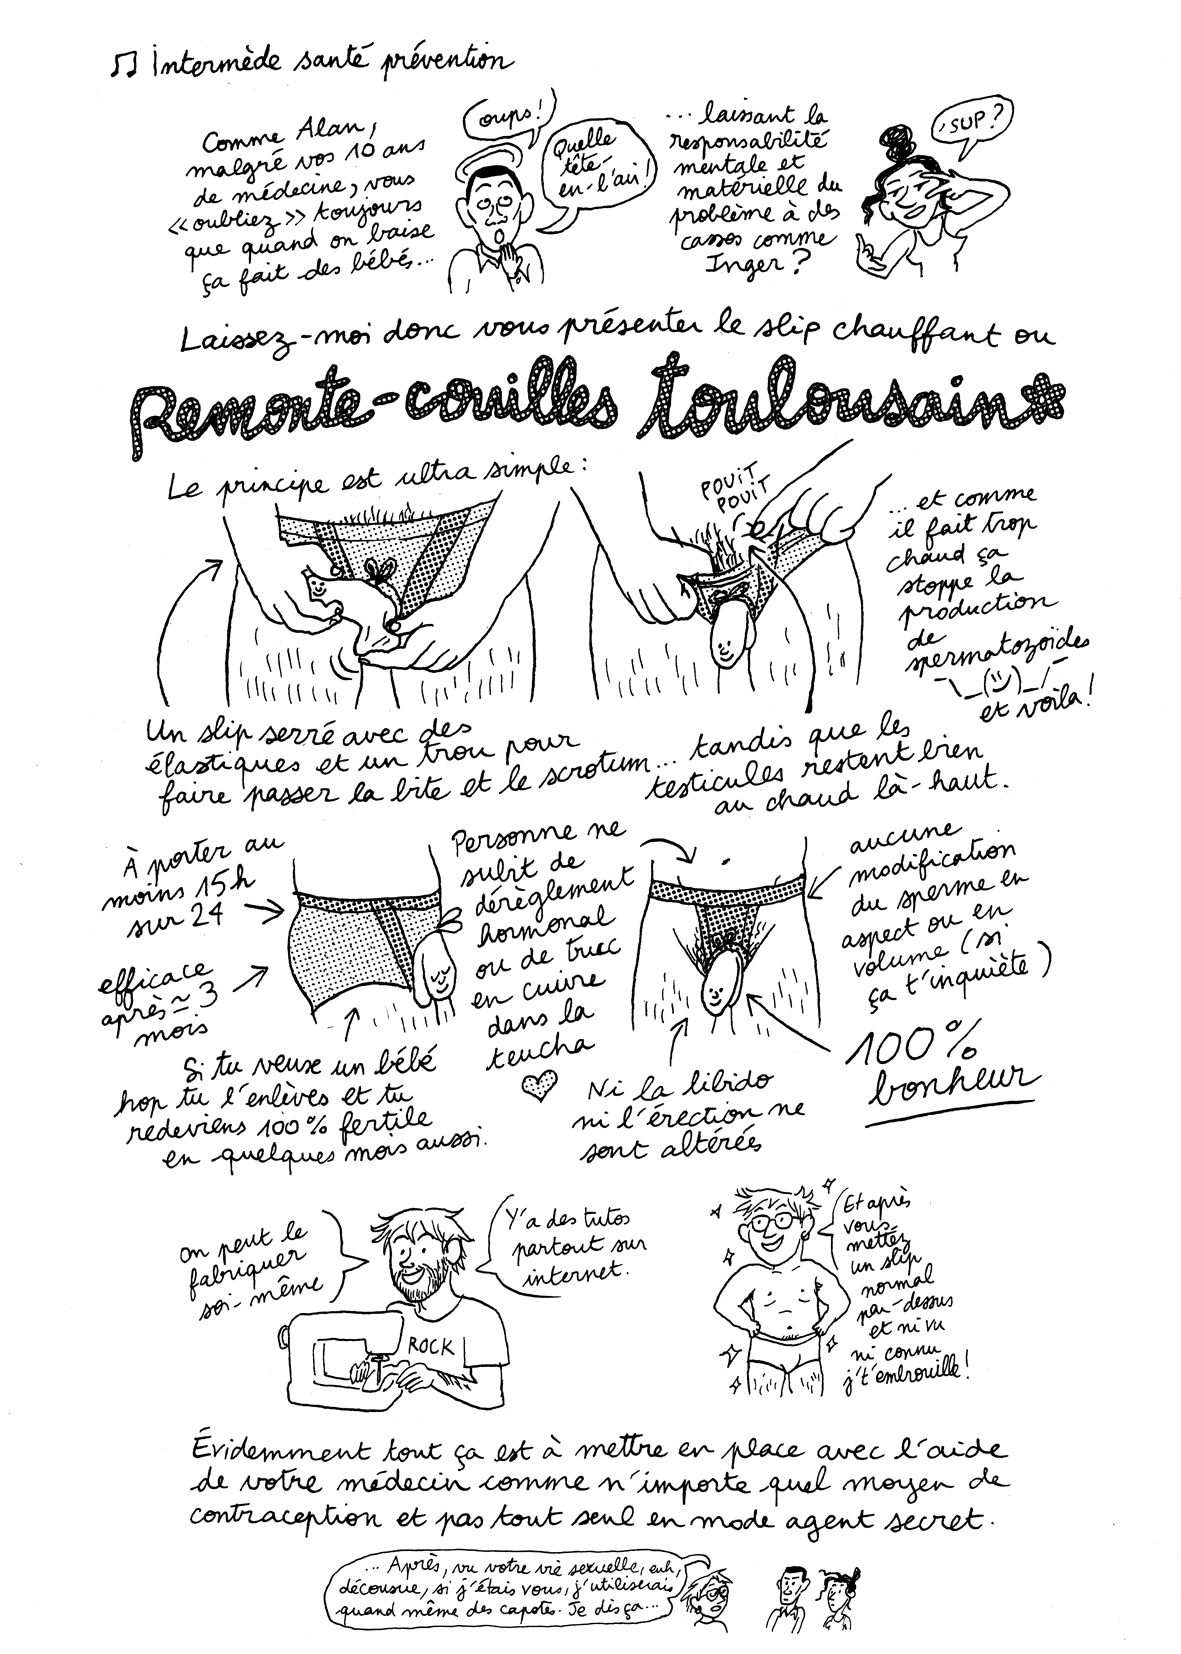 ♫ Intermède santé prévention
Comme Alan,
malgré vos 10 ans
de médecine, vous
<< oubliez >> toujours
que quand on baise
ça fait des bébés...
oups!
Quelle
tête-
en-l'air!
... laissant la
responsabilité
mentale et
matérielle du
problème à des
cassos comme
Inger ?
'SUP ?
Laissez-moi donc vous présenter le slip chauffant ou
Remonte-couilles toulousain*
Le principe est ultra simple :
POUIT
POUIT
... et comme
il fait trop
chaud ça
stoppe la
production
de
spermatozoïdes
et voila!
Un slip serré avec des
élastiques et un trou pour
faire passer la bite et le scrotum...
tandis que les
testicules restent bien
au chaud là-haut.
À porter au
moins 15h
sur 24
efficace
après ≃ 3
mois
Si tu veux un bébé
hop tu l'enlèves et tu
redeviens 100% fertile
en quelques mois aussi.
Personne ne
subit de
dérèglement
hormonal
ou de truc
en cuivre
dans la
teucha
aucune
modification
du sperme en
aspect ou en
volume (si
ça t'inquiète)
100%
bonheur
Ni la libido
ni l'érection ne
sont altérés
On peut le
fabriquer
soi-même
Y'a des tutos
partout sur
internet.
ROCK
Et après
vous
mettez
un slip
normal
par-dessus
et ni vu
ni connu
j't'embrouille!
Évidemment tout ça est à mettre en place avec l'aide
de votre médecin comme n'importe quel moyen de
contraception et pas tout seul en mode agent secret.
... Après, vu votre vie sexuelle, euh,
décousue, si j'étais vous, j'utiliserais
quand même des capotes. Je dis ça...